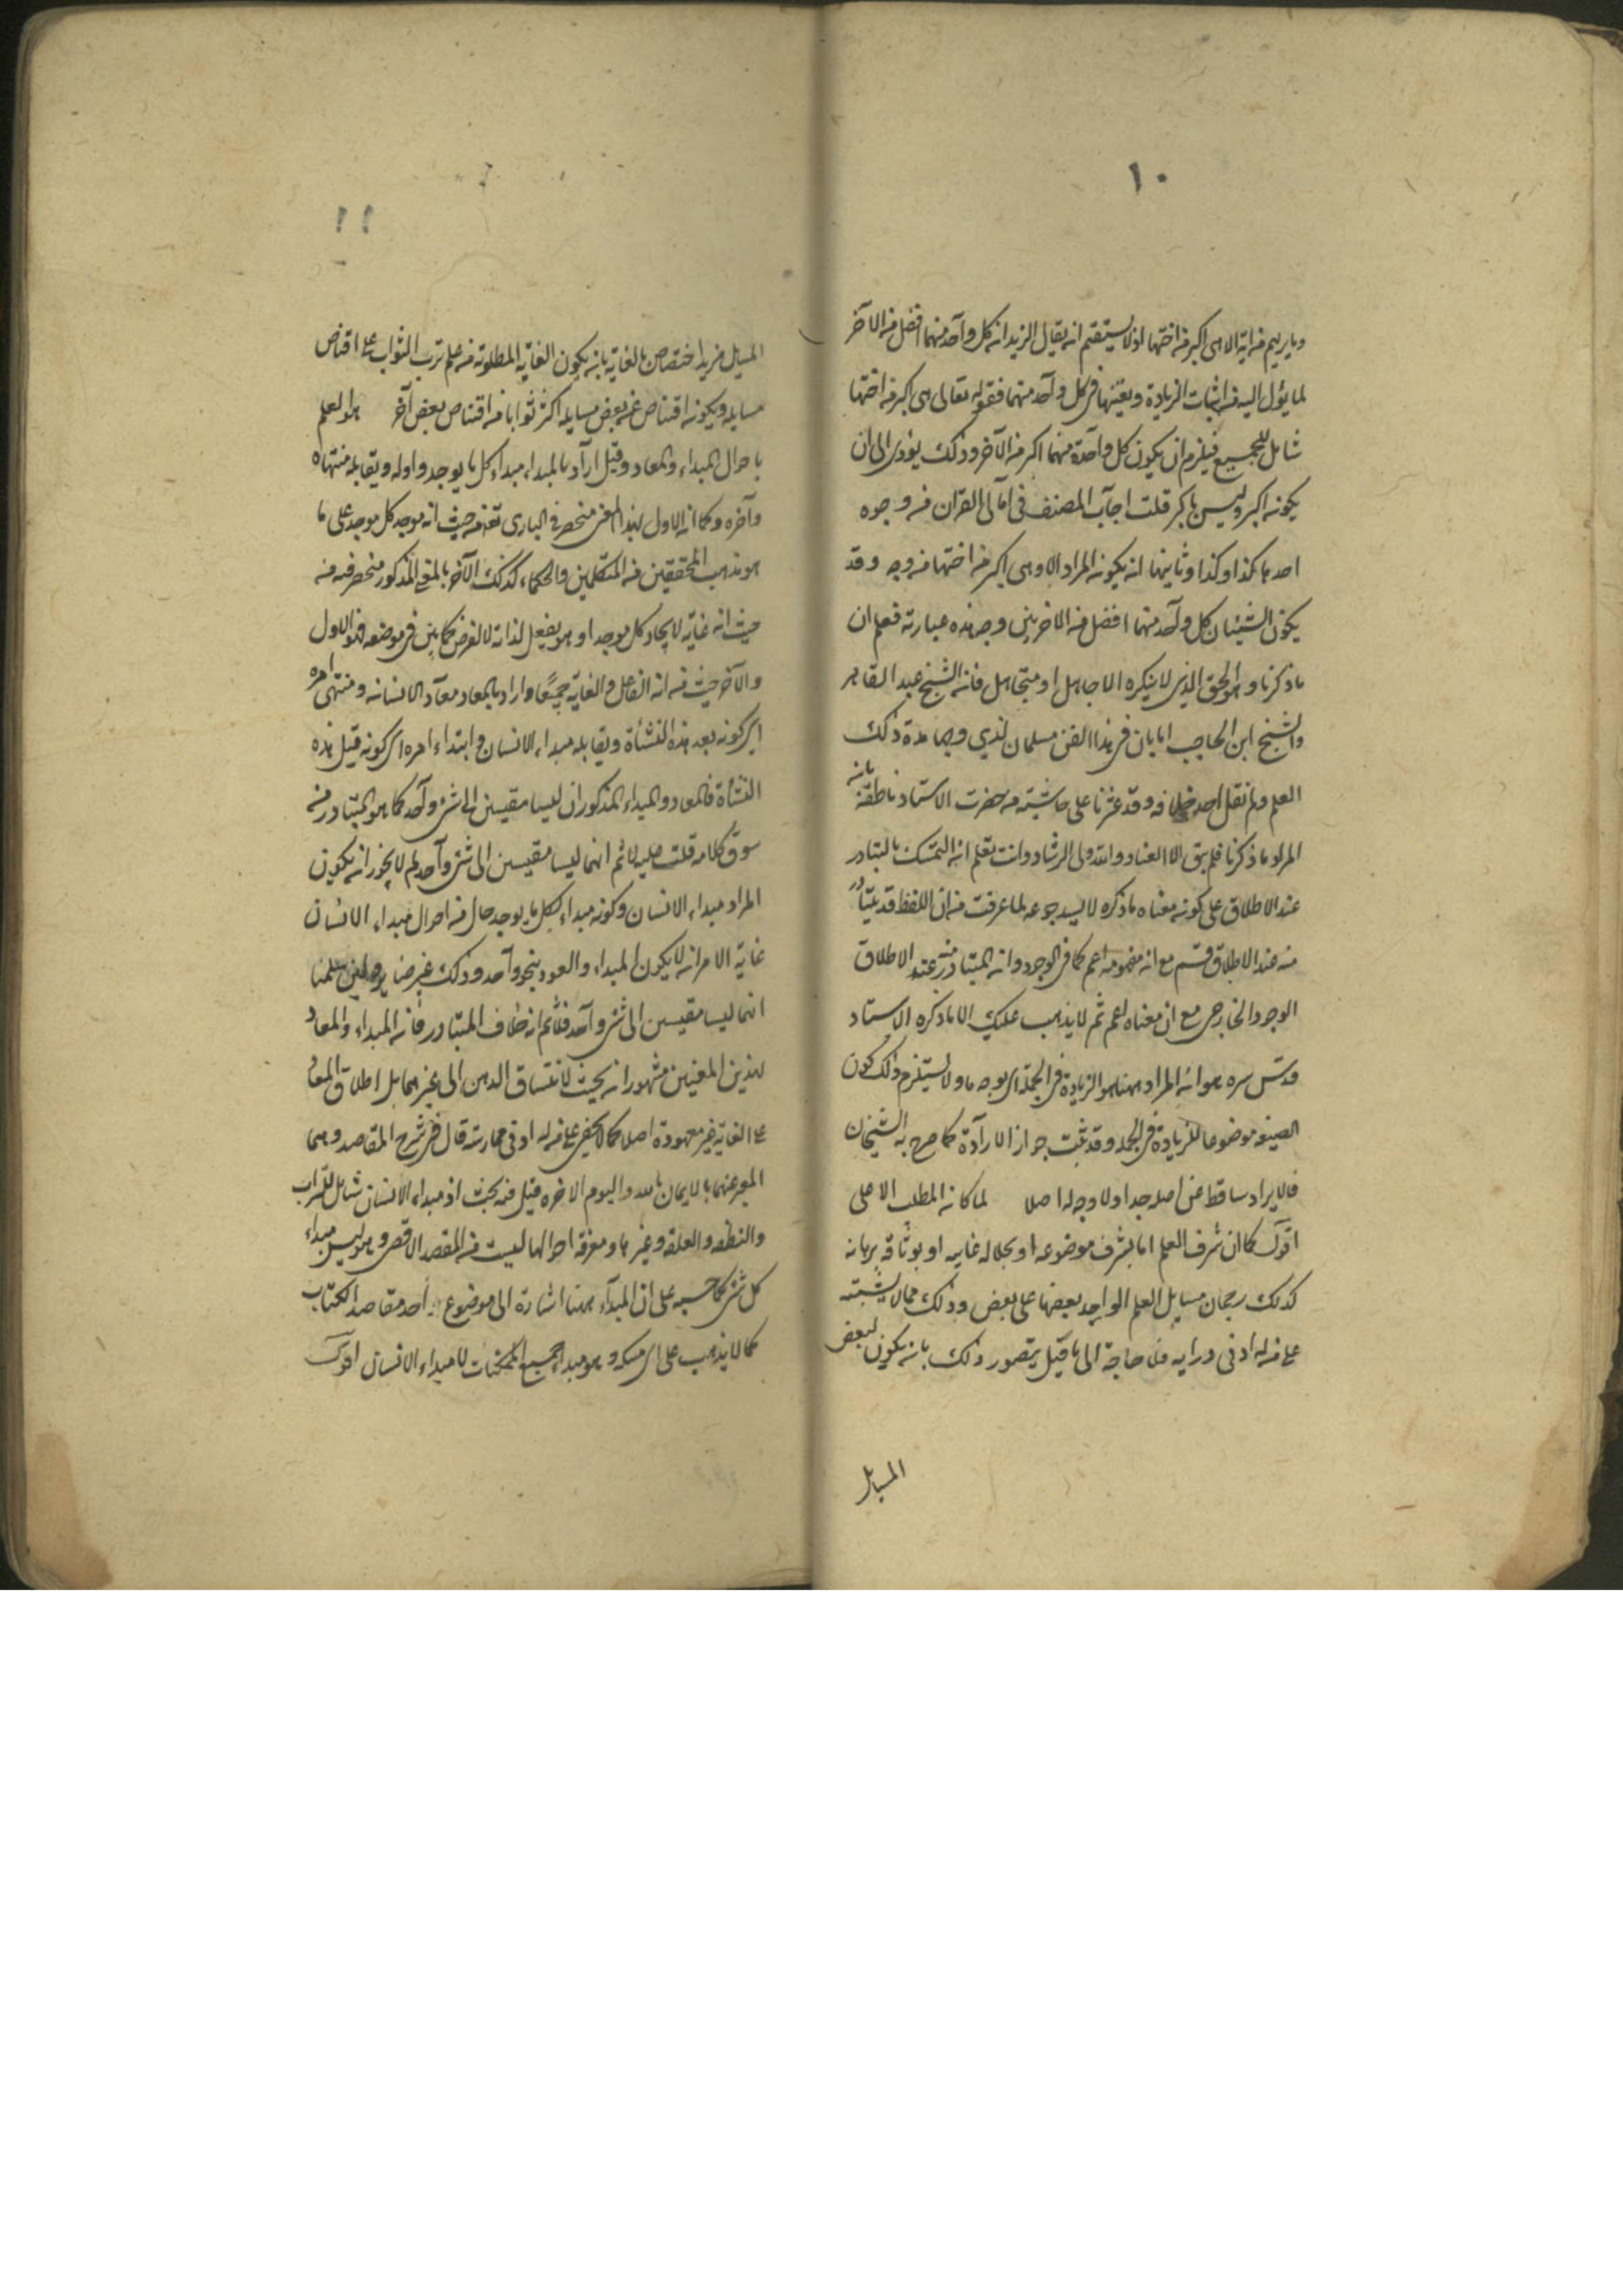 ١٠
وما يريهم من آية الا هي اكبر من اختها اذ لا يستقيم ان يقال الزيدان كل واحد منهما افضل من الآخر
لما يؤل اليه من اثبات الزيادة ونفيها في كل واحد منهما فقوله تعالى هي اكبر من اختها
شامل للجميع فيلزم ان يكون كل واحدة منهما اكبر من الآخر وذلك يؤدى الى ان
يكون اكبر وليس باكبر قلت اجاب المصنف في امالى القران من وجوه
احدها كذا وكذا وثانيها ان يكون المراد الا وهى اكبر من اختها من وجه وقد
يكون الشيئان كل واحد منهما افضل من الاخر من وجه هذه عبارته فعلم ان
ما ذكرنا هو الحق الذي لا ينكره الا جاهل او متجاهل فان الشيخ عبد القاهر
والشيخ ابن الحاجب امامان في هذا الفن مسلمان لذي وجهابذة ذلك
العلم ولم نقل احد خلافه وقد عثرنا على حاشية من حضرت الاستاد ناطقة بان
المراد ما ذكرنا فلم يبق الا العناد والله ولى الرشاد وانت تعلم ان التمسك بالتبادر
عند الاطلاق على كون معناه ما ذكره لا يسد جوعه لما عرفت من ان اللفظ قد يتبادر
منه عند الاطلاق قسم مع ان مفهومه اعم كما في الوجود وانه المتبادر منه عند الاطلاق
الوجود الخارجى مع ان معناه اعم ثم لا يذهب عليك الا ما ذكره الاستاد
قدس سره هو ان المراد ههنا هو الزيادة في الجملة اى بوجه ما ولا يستلزم ذلك كون
الصيغه موضوعا للزيادة في الجمله وقد ثبت جواز الارادة كما صرح به الشيخان
فالايراد ساقط عن اصله جدا ولا وجه له اصلا لما كان المطلب الاعلى
اقول كما ان شرف العلم اما بشرف موضوعه او بجلاله غايته او بوثاقه برهانه
كذلك رجحان مسايل العلم الواحد بعضها على بعض وذلك مما لا يشتبه
على من له ادنى درايه فلا حاجة الى ما قيل يتصور ذلك بان يكون لبعض
المسايل
١١
المسايل مزيد اختصاص بالغاية بان يكون الغاية المطلوبة من علم ترتب الثواب على اقتناص
مسايله ويكون اقتناص بعض مسايله اكثر ثوابا من اقتناص بعض آخر هو العلم
باحوال المبداء والمعاد وقيل اراد بالمبداء مبداء كل ما يوجد واوله ويقابله منتهاه
وآخره وكما ان الاول بهذا المعنى منحصر في البارى تعه من حيث انه موجد كل موجد على ما
هو مذهب المحققين من المتكلمين والحكماء كذلك الآخر بالمعنى المذكور منحصر فيه من
حيث انه غاية لايجاد كل موجد اذ هو يفعل لذاته لا لغرض كما بين في موضعه فهو الاول
والآخر حيث انه الفاعل والغاية جميعا واراد بالمعاد معاد الانسان ومنتهى امره
اى كونه بعد هذه النشأة ويقابله مبداء الانسان وابتداء امره اى كونه قبل هذه
النشأة فالمعاد والمبداء المذكوران ليسا مقيسين الى شئ واحد كما هو المتبادر من
سوق كلامه قلت عليه لا ثم انهما ليسا مقيسين الى شئ واحد لم لا يجوز ان يكون
المراد مبداء الانسان وكونه مبداء لكل ما يوجد حال من احوال مبداء الانسان
غاية الامر ان لا يكون المبداء والعود بنحو واحد وذلك غير ضاير ولئن سلمنا
انهما ليسا مقيسين الى شئ واحد فلا ثم انه خلاف المتبادر فان المبداء والمعاد
لهذين المعنيين مشهوران بحيث لا ينساق الذهن الى غيرهما بل اطلاق المعاد
على الغاية غير معهودة اصلا كما لا يخفى على من له ادنى ممارسة قال في شرح المقاصد وهما
المعبر عنهما بالايمان بالله واليوم الاخره قيل فيه بحث اذ مبداء الانسان شامل للتراب
والنطفه والعلقه وغيرها ومعرفة احوالها ليست من المقصد الاقصى وهو ليس مبداء
كل شئ كما حسبه على ان المبداء ههنا اشارة الى موضوع احد مقاصد الكتاب
كما لا يذهب على اى مسكه وهو مبداء جميع الممكنات لا مبداء الانسان اقول